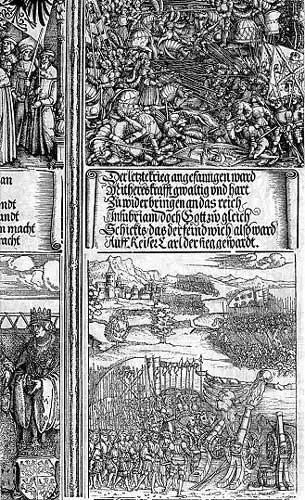 an
ndt
andt
n macht
racht
Der letzte krieg angefanngen ward
Mit hereskrafft gwaltig vnd hart
Zu widerbringen an das reich
Insubriam doch Gott zu gleich
Schickts das der feind wich alsbward
Auff Keiser Carl der sieg gewardt.